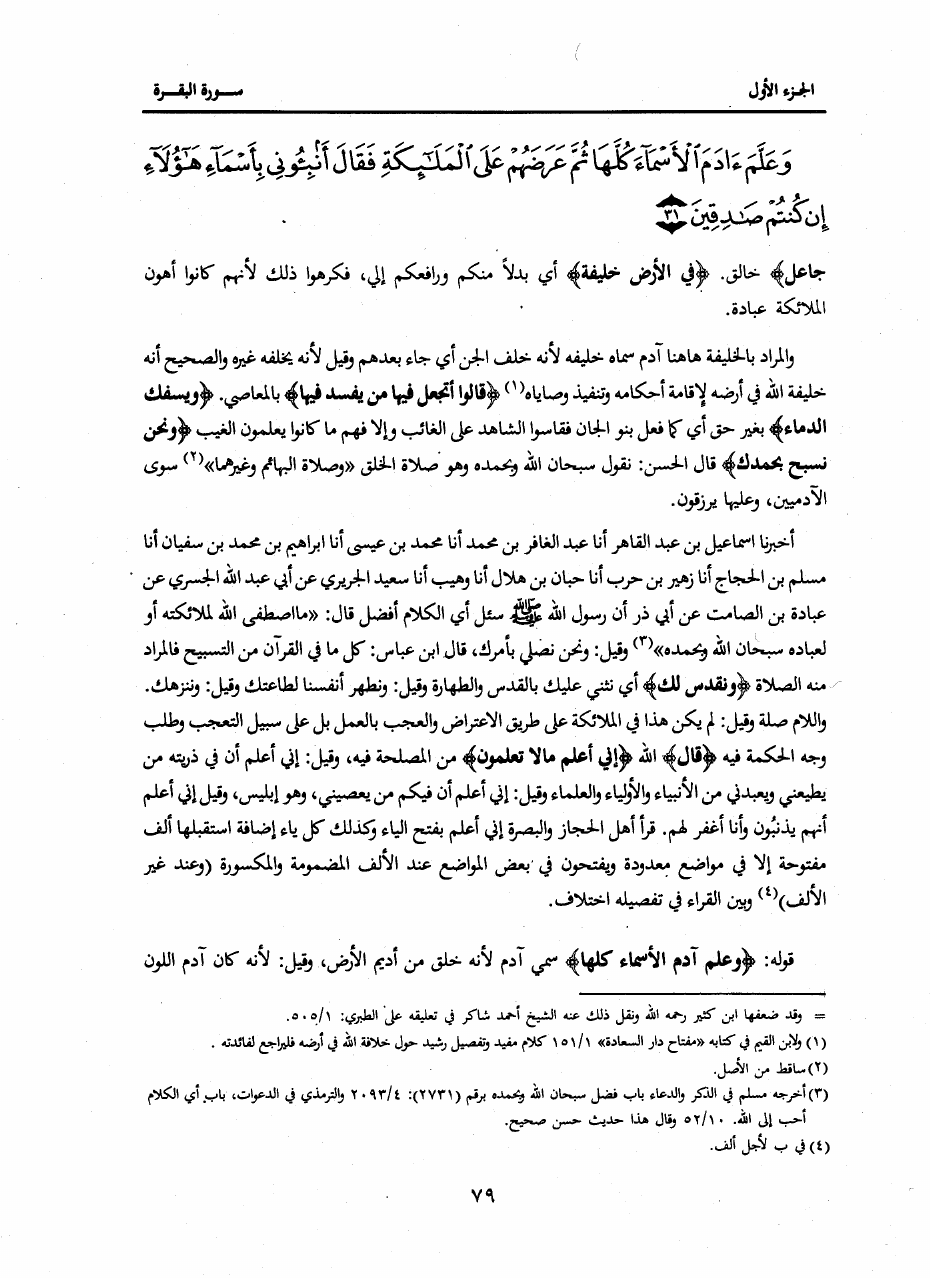 الجزء الأول
سورة البقرة
وَعَلَّمَ ءَادَمَ ٱلْأَسْمَآءَ كُلَّهَا ثُمَّ عَرَضَهُمْ عَلَى ٱلْمَلَـٰٓئِكَةِ فَقَالَ أَنۢبِـُٔونِى بِأَسْمَآءِ هَـٰٓؤُلَآءِ
إِن كُنتُمْ صَـٰدِقِينَ ٣١
جاعل﴾ خالق. ﴿في الأرض خليفة﴾ أي بدلاً منكم ورافعكم إلي، فكرهوا ذلك لأنهم كانوا أهون
الملائكة عبادة.
والمراد بالخليفة هاهنا آدم سماه خليفه لأنه خلف الجن أي جاء بعدهم وقيل لأنه يخلفه غيره والصحيح أنه
خليفة الله في أرضه لإقامة أحكامه وتنفيذ وصاياه(١) ﴿قالوا أتجعل فيها من يفسد فيها﴾ بالمعاصي. ﴿ويسفك
الدماء﴾ بغير حق أي كما فعل بنو الجان فقاسوا الشاهد على الغائب وإلا فهم ما كانوا يعلمون الغيب ﴿ونحن
نسبح بحمدك﴾ قال الحسن: نقول سبحان الله وبحمده وهو صلاة الخلق «وصلاة البهائم وغيرهما»(٢) سوى
الآدميين، وعليها يرزقون.
أخبرنا اسماعيل بن عبد القاهر أنا عبد الغافر بن محمد أنا محمد بن عيسى أنا ابراهيم بن محمد بن سفيان أنا
مسلم بن الحجاج أنا زهير بن حرب أنا حبان بن هلال أنا وهيب أنا سعيد الجريري عن أبي عبد الله الجسري عن
عبادة بن الصامت عن أبي ذر أن رسول الله ﷺ سئل أي الكلام أفضل قال: «مااصطفى الله لملائكته أو
لعباده سبحان الله وبحمده»(٣) وقيل: ونحن نصلي بأمرك، قال ابن عباس: كل ما في القرآن من التسبيح فالمراد
منه الصلاة ﴿ونقدس لك﴾ أي نثني عليك بالقدس والطهارة وقيل: ونطهر أنفسنا لطاعتك وقيل: وننزهك.
واللام صلة وقيل: لم يكن هذا في الملائكة على طريق الاعتراض والعجب بالعمل بل على سبيل التعجب وطلب
وجه الحكمة فيه ﴿قال﴾ الله ﴿إني أعلم مالا تعلمون﴾ من المصلحة فيه، وقيل: إني أعلم أن في ذريته من
يطيعني ويعبدني من الأنبياء والأولياء والعلماء وقيل: إني أعلم أن فيكم من يعصيني، وهو إبليس، وقيل إني أعلم
أنهم يذنبُون وأنا أغفر لهم. قرأ أهل الحجاز والبصرة إني أعلم بفتح الياء وكذلك كل ياء إضافة استقبلها ألف
مفتوحة إلا في مواضع معدودة ويفتحون في بعض المواضع عند الألف المضمومة والمكسورة (وعند غير
الألف)(٤) وبين القراء في تفصيله اختلاف.
قوله: ﴿وعلم آدم الأسماء كلها﴾ سمي آدم لأنه خلق من أديم الأرض، وقيل: لأنه كان آدم اللون
= وقد ضعفها ابن كثير رحمه الله ونقل ذلك عنه الشيخ أحمد شاكر في تعليقه على الطبري: ٥٠٥/١.
(١) ولابن القيم في كتابه «مفتاح دار السعادة» ١٥١/١ كلام مفيد وتفصيل رشيد حول خلافة الله في أرضه فليراجع لفائدته .
(٢) ساقط من الأصل.
(٣) أخرجه مسلم في الذكر والدعاء باب فضل سبحان الله وبحمده برقم (٢٧٣١): ٢٠٩٣/٤ والترمذي في الدعوات، باب أي الكلام
أحب إلى الله. ٥٢/١٠ وقال هذا حديث حسن صحيح.
(٤) في ب لأجل ألف.
٧٩